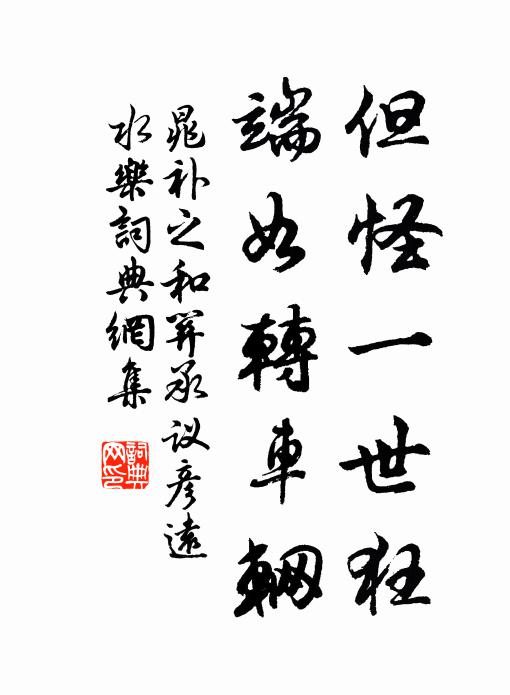 但怪一世狂
端如轉車輞
晁补之和關承议彥遠
水樂詞典網集
詞典网印